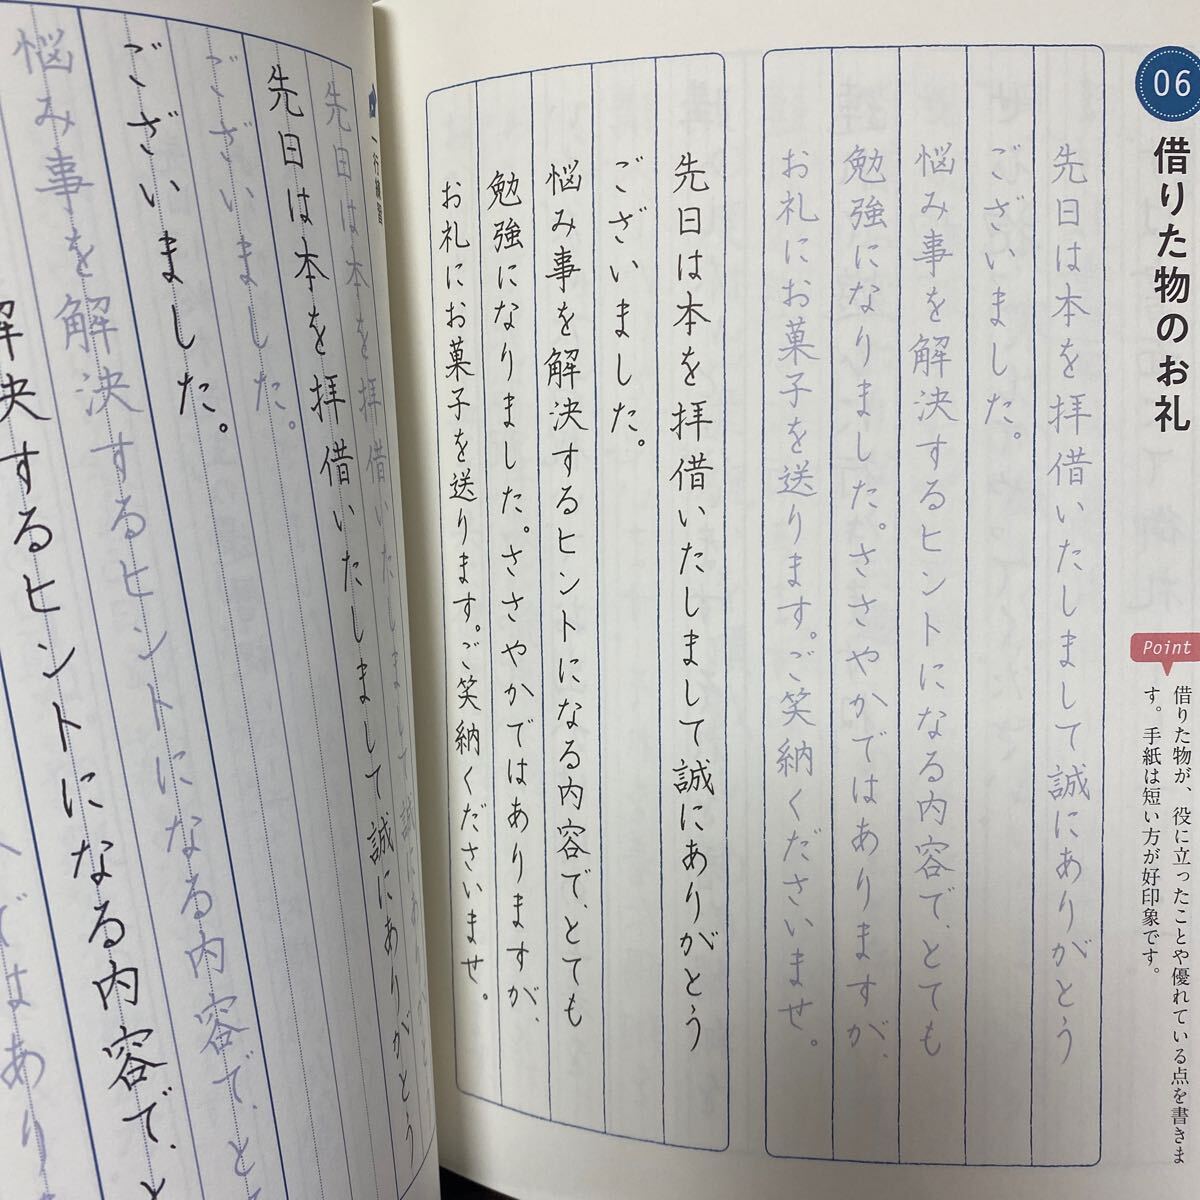 06
借りた物のお礼
Point
借りた物が、役に立ったことや優れている点を書きま
す。手紙は短い方が好印象です。
先日は本を拝借いたしまして誠にありがとう
ございました。
悩み事を解決するヒントになる内容で、とても
勉強になりました。ささやかではありますが、
お礼にお菓子を送ります。ご笑納くださいませ。
先日は本を拝借いたしまして誠にありがとう
ございました。
悩み事を解決するヒントになる内容で、とても
勉強になりました。ささやかではありますが、
お礼にお菓子を送ります。ご笑納くださいませ。
一行練習
先日は本を拝借いたしまして誠にありがとう
先日は本を拝借いたしまして誠にありがとう
ございました。
ございました。
悩み事を解決するヒントになる内容で、と
解決するヒントになる内容で、と
ではあり